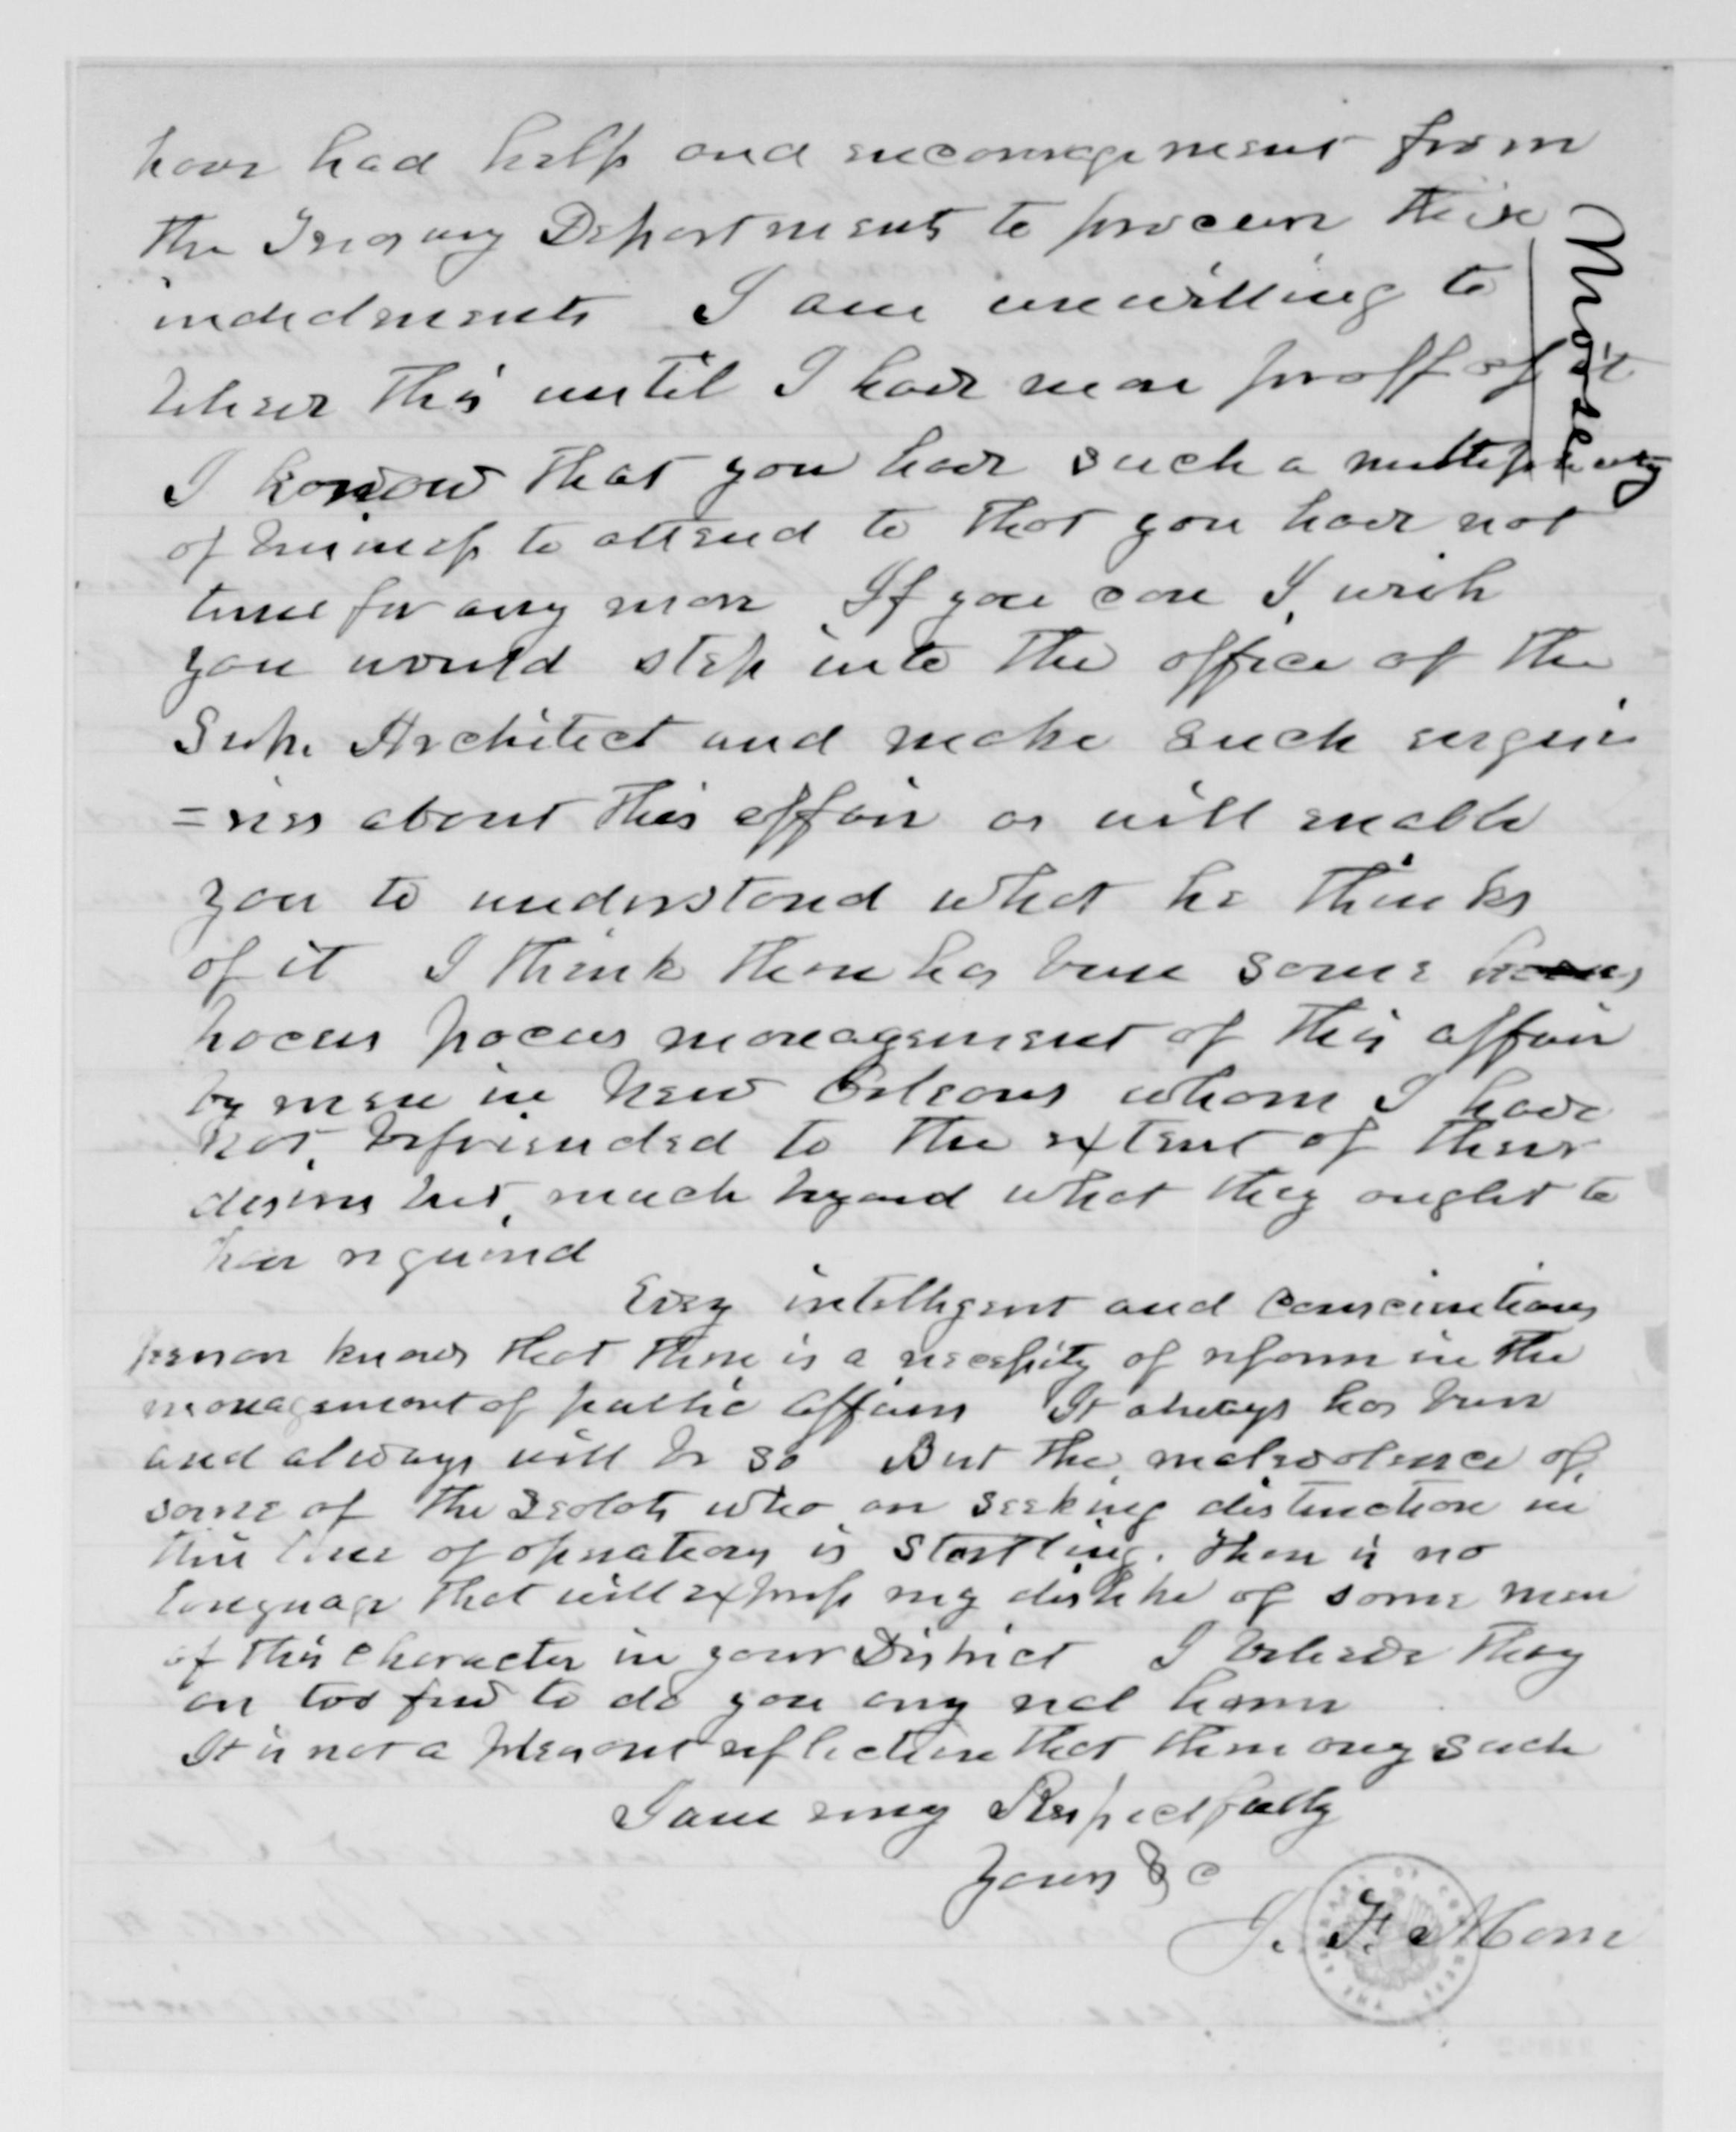 have had help and encouragement from
the Treasury Department to procure these
indictments I am unwilling to
believe this until I have more proff of it
Morse
I know that you have such a multiplicity
of business to attend to that you have not
time for any more If you can I wish
you would step into the office of the
Sup. Architect and make such enquir
=ies about this affair as will enable
you to understand what he thinks
of it I think there has been some
hocus pocus management of this affair
by men in New Orleans whom I have
not befriended to the extent of their
desires but much beyond what they ought to
have required
Every intelligent and conscientious
person knows that there is a necessity of reform in the
management of public affairs It always has been
and always will be so But the malevolence of
some of the zealots who are seeking distinction in
this line of operations is startling. There is no
language that will express my dislike of some men
of this character in your District I believe they
are too few to do you any real harm
It is not a pleasant reflection that there any such
I am very Respectfully
Yours &c
I. F. Morse